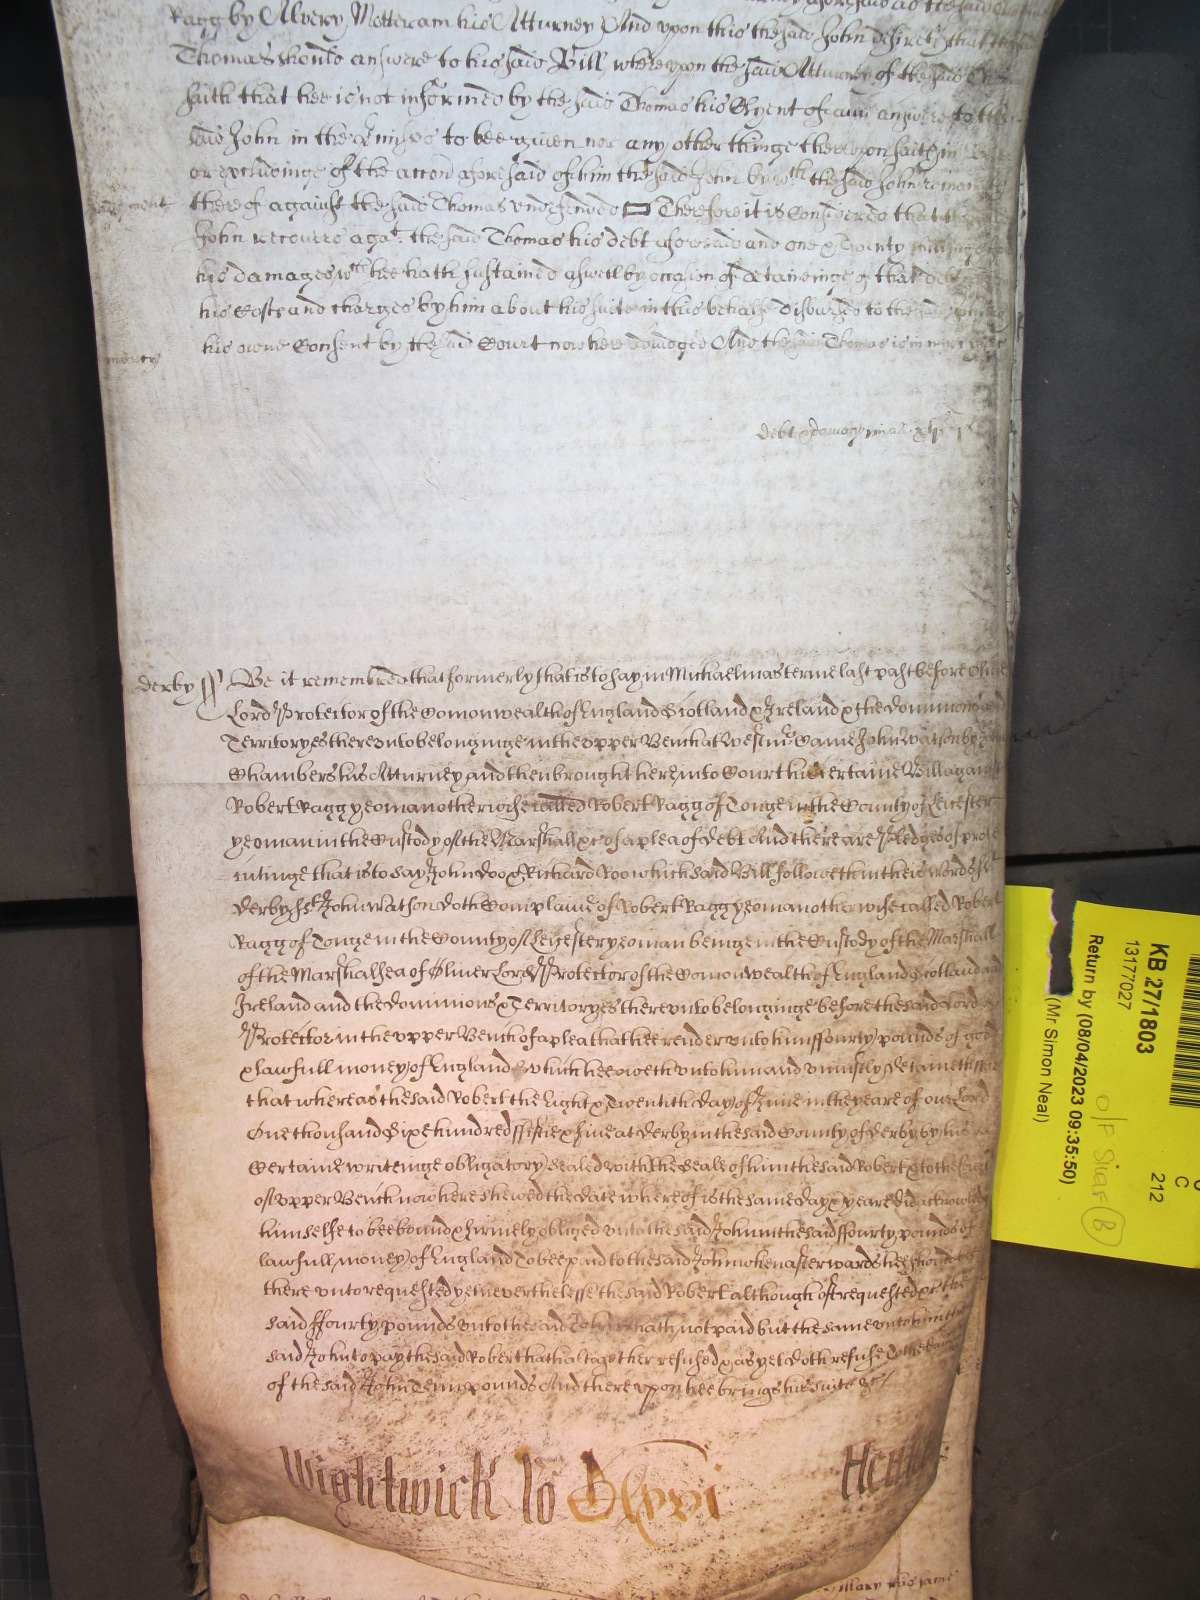 Ragg by Alvery Motteram his Atturney And upon this the said John desireth that the said
Thomas should answere to his said Bill whereupon the said Atturney of the said
saith that hee is not informed by the said Thomas his Clyent of any answere to the
said John in the p'misses to bee given nor any other thinge thereupon saith in
or precludinge of the accon aforesaid of him the said John by wch the said John remaines
Judgement thereof against the said Thomas undefended Therefore it is Considered that the said
John recovere agat. the said Thomas his debt aforesaid and one & Twenty shillings for
his damages wch hee hath sustained aswell by occasion of detaineinge of that debt
his Costs and charges by him about his suite in this behalfe disbursed to the said John
mercy his owne Consent by the said Court now here adiudged And the said Thomas is in mercy &c
debt & damage in all
derby ss Be it remembred that formerly that is to say in Michaelmas terme last past before Oliver
Lord Protector of the Comonwealth of England Scotland & Ireland & the dominions and
Territoryes thereunto belonginge in the upper Bench at Westmr Came John Watson by John
Chambers his Atturney and then brought here into Court his Certaine Bill against
Robert Ragg yeoman otherwise called Robert Ragg of Tonge in the County of Leicester
yeoman in the Custody of the Marshall &c of a plea of debt And there are Pledges of prose
cutinge that is to say John doo & Richard Roo which said Bill followeth in theis words ss
derby ss John Watson doth Complaine of Robert Ragg yeoman otherwise called Robert
Ragg of Tonge in the County of Leicester yeoman beinge in the Custody of the Marshall
of the Marshalsea of Oliver Lord Protector of the Comonwealth of England Scotland and
Ireland and the dominions & Territoryes thereunto belonginge before the said Lord
Protector in the upper Bench of a plea that hee render unto him ffourty pounds of good
& lawfull money of England which hee oweth unto him and uniustly detaineth for
that whereas the said Robert the Eight & Twentith day of June in the yeare of our Lord
One thousand Sixe hundred ffiftie & five at derby in the said County of derby by his
Certaine writeinge obligatory Sealed with the Seale of him the said Robert & to the Court
of Upper Bench now here shewed the date whereof is the same day & yeare did acknowledge
himselfe to bee bound & firmely obliged unto the said John in the said ffourty pounds of
lawfull money of England To bee paid to the said John when afterwards hee should bee
there unto requested yet neverthelesse the said Robert although oft requested &c the
said ffourty pounds unto the said John hath not paid but the same unto him the
said John to pay the said Robert hath altogether refused & as yet doth refuse To the damage
of the said John Tenn pounds And thereupon hee brings his suite &c
Wightwick
KB 27/1803
13177027
Return by (08/04/2023 09:35:50)
(Mr Simon Neal)
C
212
B